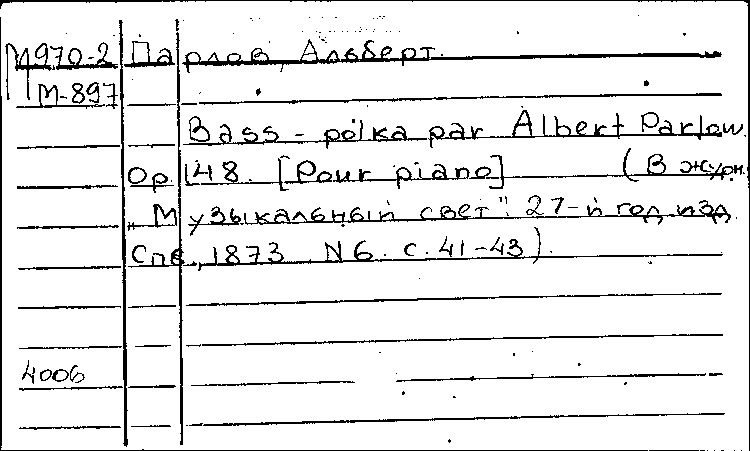 М970-2 Парлов, Альберт.
М-897
Bass - polka par Albert Parlow.
Op. 148. [Pour piano] (В журн.
„Музыкальный свет". 27-й год изд.
Спб., 1873. N 6. с. 41-43).
4006